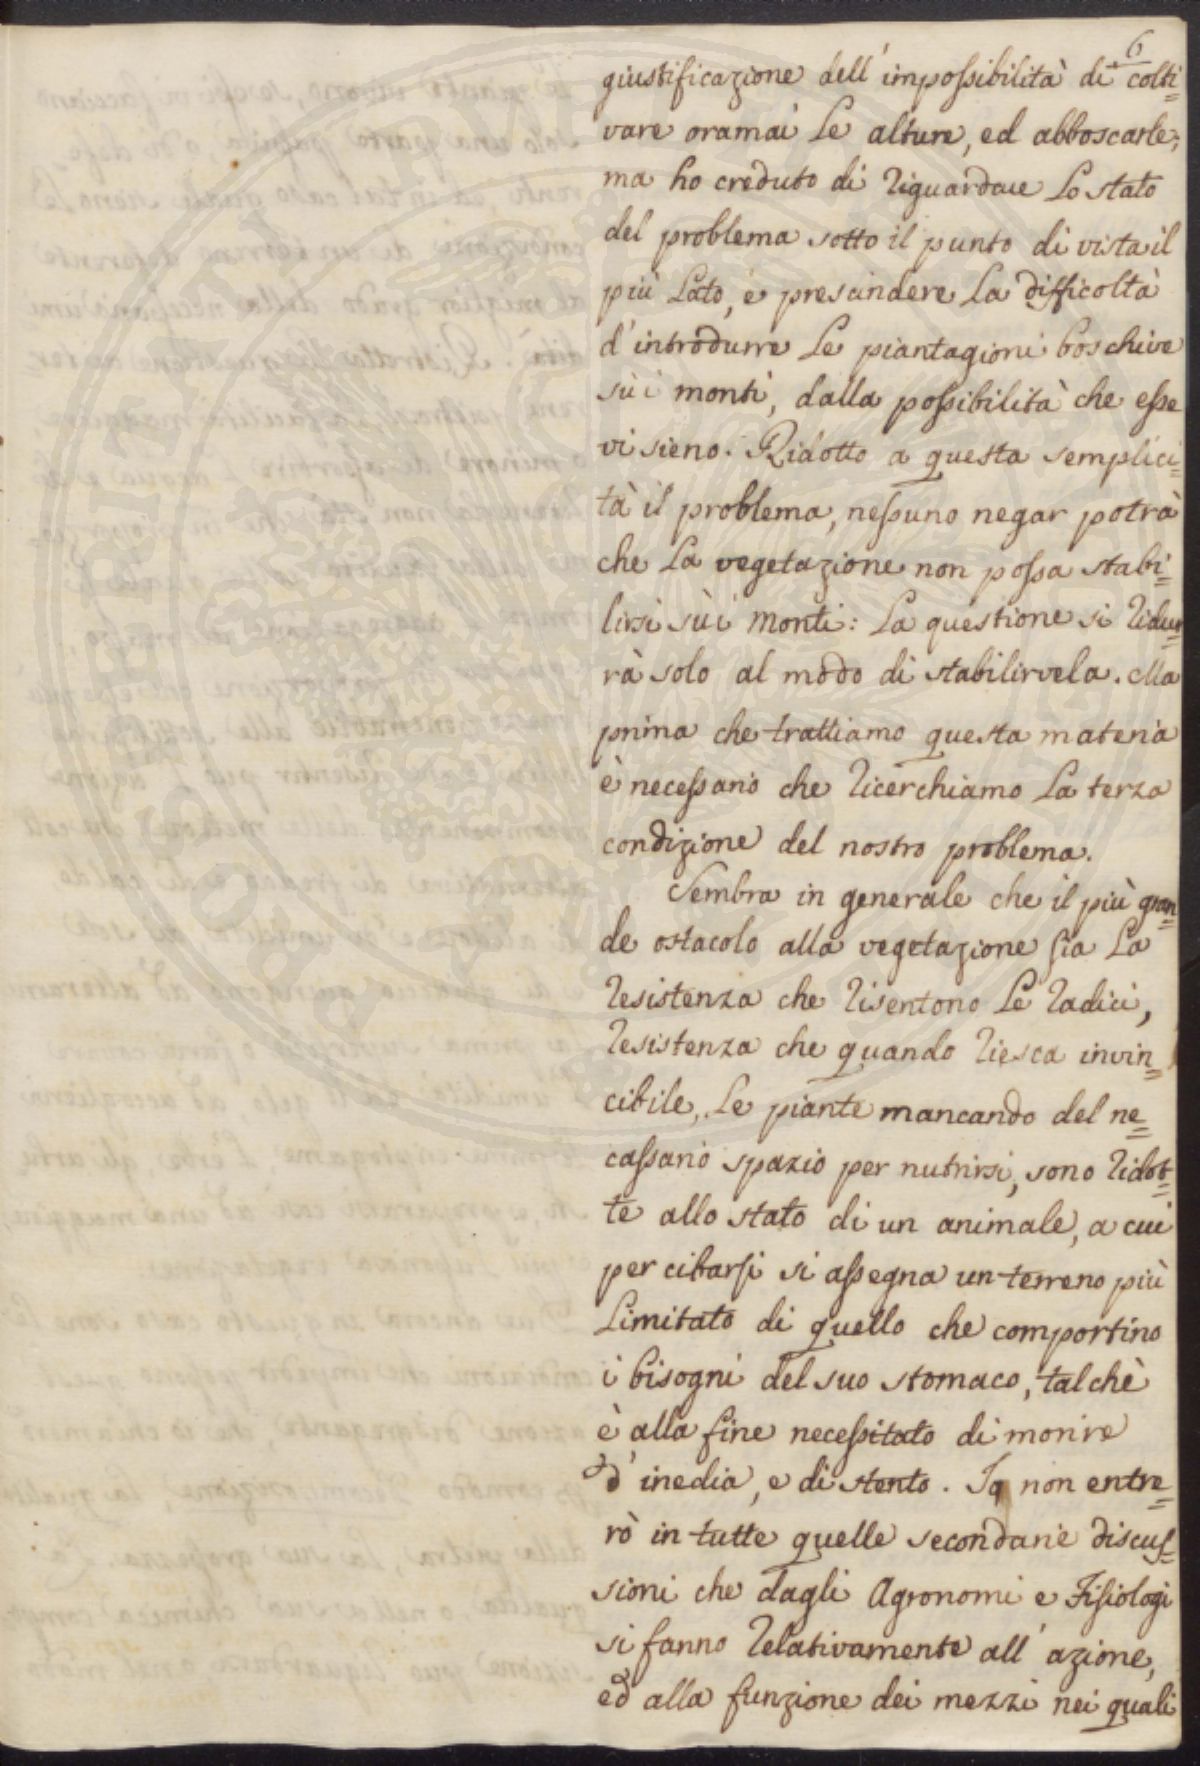 6
giustificazione dell'impossibilità di colti=
vare oramai le alture, ed abboscarle;
ma ho creduto di riguardare lo stato
del problema sotto il punto di vista il
più lato, e prescindere la difficoltà
d'introdurre le piantagioni boschive
sù i monti, dalla possibilità che esse
vi sieno. Ridotto a questa semplici=
tà il problema, nessuno negar potrà
che la vegetazione non possa stabi=
lirsi sù i monti: la questione si ridur=
rà solo al modo di stabilirvela. Ma
prima che trattiamo questa materia
è necessario che ricerchiamo la terza
condizione del nostro problema.
Sembra in generale che il più gran=
de ostacolo alla vegetazione sia la
resistenza che risentono le radici,
resistenza che quando riesca invin=
cibile, le piante mancando del ne=
cassario spazio per nutrirsi, sono ridot=
te allo stato di un animale, a cui
per cibarsi si assegna un terreno più
limitato di quello che comportino
i bisogni del suo stomaco, talchè
è alla fine necessitato di morire
d'inedia, e di stento. Io non entre=
rò in tutte quelle secondarie discus=
sioni che dagli Agronomi e Fisiologi
si fanno relativamente all'azione,
ed alla funzione dei mezzi nei quali